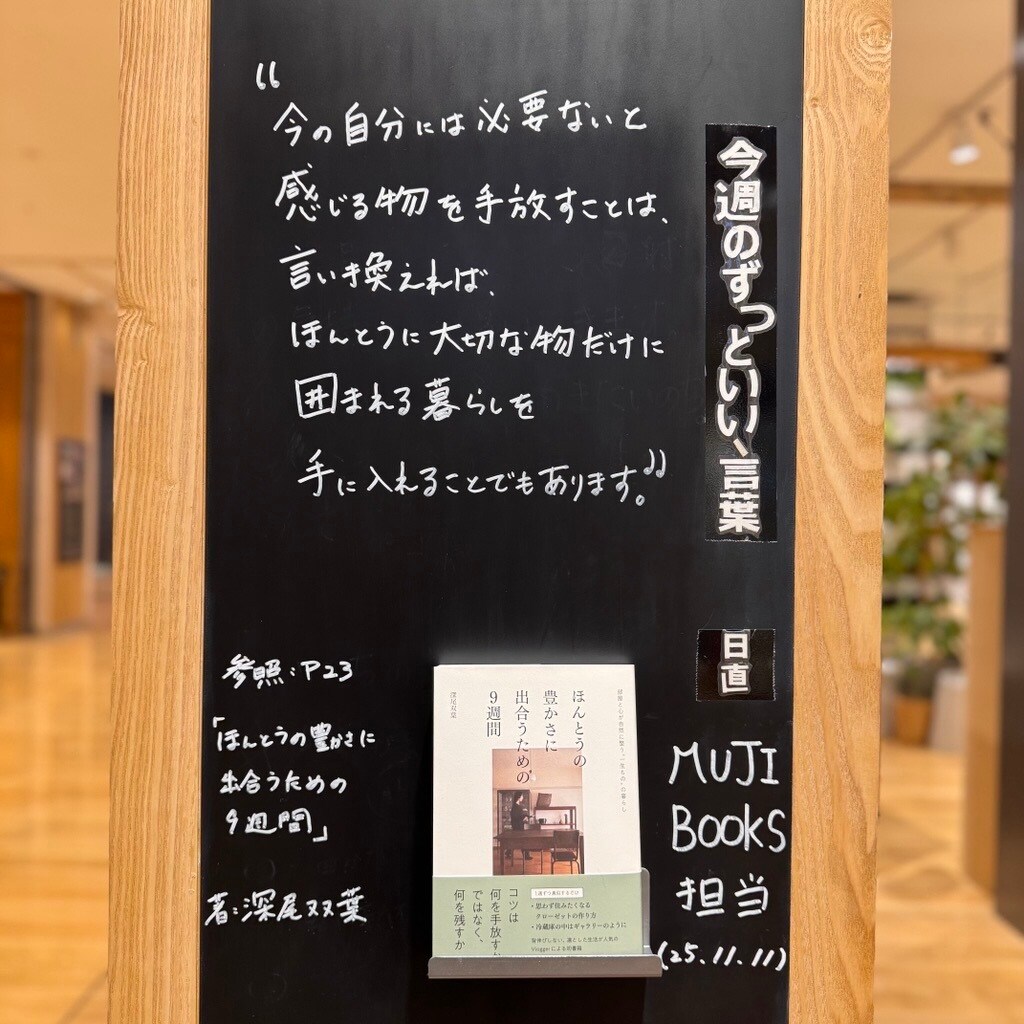 今週のずっといい、言葉
“今の自分には必要ないと
感じる物を手放すことは、
言い換えれば、
ほんとうに大切な物だけに
囲まれる暮らしを
手に入れることでもあります。”
参照：P23
「ほんとうの豊かさに
出合うための
9週間」
著：深尾双葉
日直
MUJI
BOOKS
担当
(25.11.11)
ほんとうの
豊かさに
出合うための
9週間
深尾双葉
コツは
何を手放すか
ではなく、
何を残すか
・思わず住みたくなる
クローゼットの作り方
・冷蔵庫の中はギャラリーのように
背伸びしない、凛とした生活が人気の
Vloggerによる初書籍